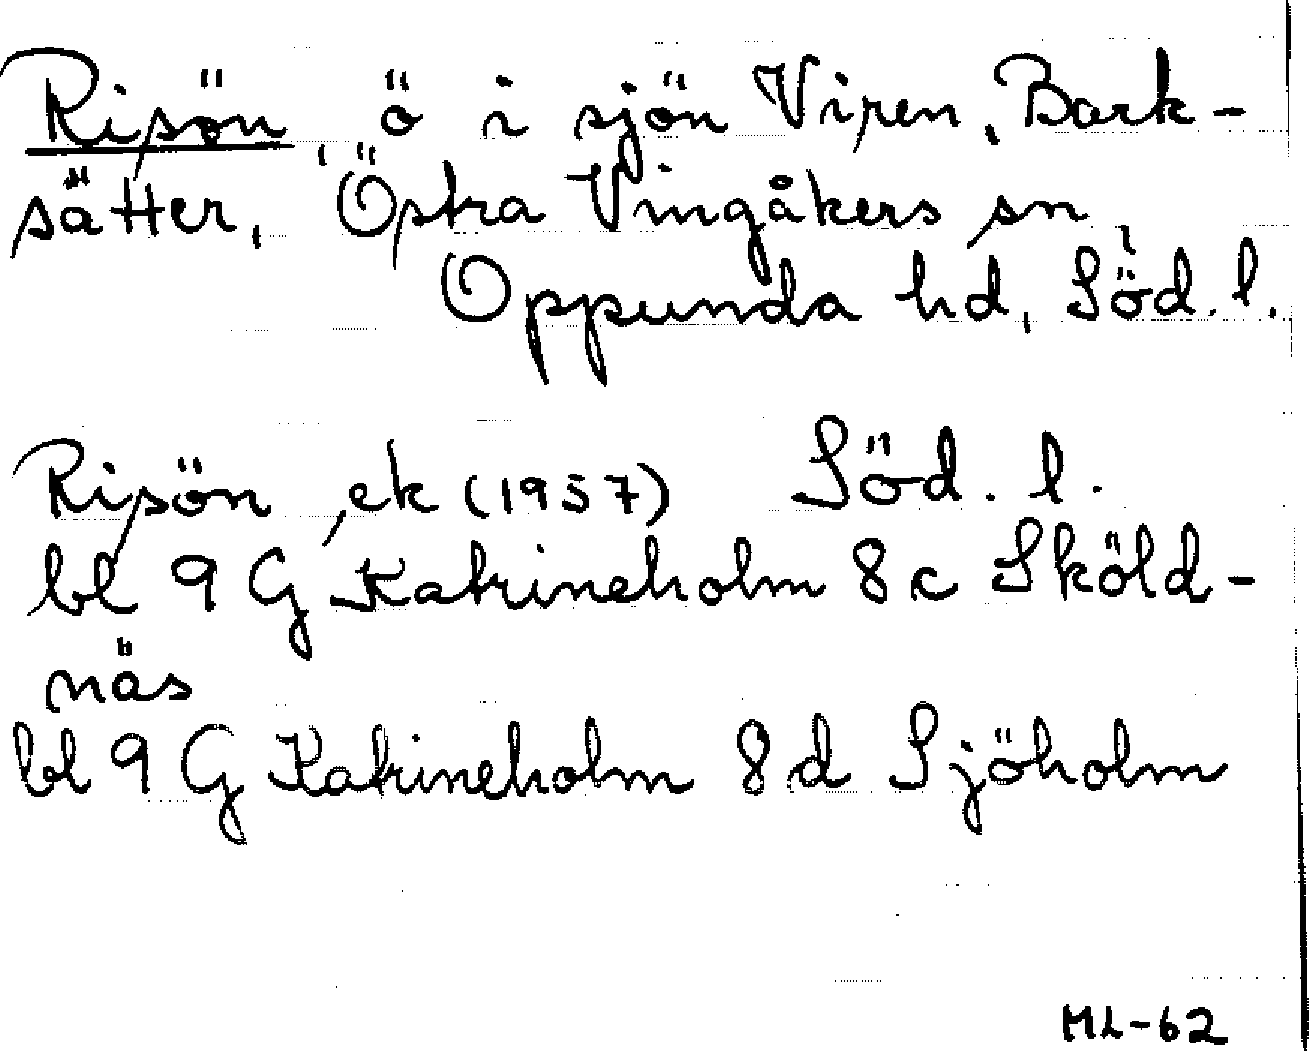 Risön, ö i sjön Viren, Bark-
sätter, Östra Vingåkers sn,
Oppunda hd, Söd. l.
Risön, ek (1957) Söd. l.
bl 9 G Katrineholm 8 c Sköld-
näs
bl 9 G Katrineholm 8 d Sjöholm
ML-62